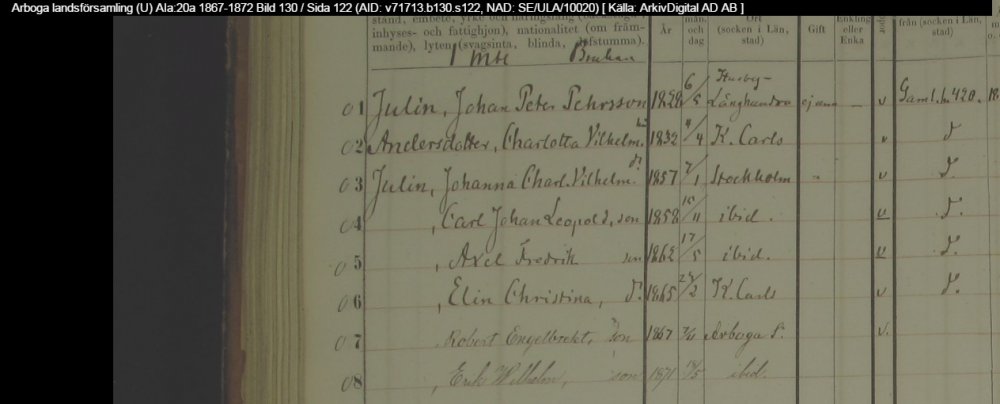 Arboga landsförsamling (U) AIa:20a 1867-1872 Bild 130 / Sida 122 (AID: v71713.b130.s122, NAD: SE/ULA/10020) [ Källa: ArkivDigital AD AB ]
stånd, embete, yrke och näringsfång (backstugu-, mån. Ort Enkling från (socken i Län,
inhyses- och fattighjon), nationalitet (om främ- År och (socken i Län, Gift eller stad)
mande), lyten (svagsinta, blinda, döfstumma). dag stad) Enka
Bruket
01 Julin, Johan Peter Pehrsson 1828 6/5 Husby-Långhundra v Gaml. b. 420.
02 Andersdotter, Charlotta Vilhelm. 1832 4/4 K. Carls v d
03 Julin, Johanna Charl. Vilhelm. d. 1857 1 Stockholm v d.
04 , Carl Johan Leopold, son 1858 11 ibid. v d.
05 , Axel Fredrik son 1862 17/5 ibid. v d.
06 , Elin Christina, d. 1865 2 K. Carls v d.
07 Robert Engelbrekt, son 1867 Arboga S. v.
08 , Erik Wilhelm, son 1871 ibid.